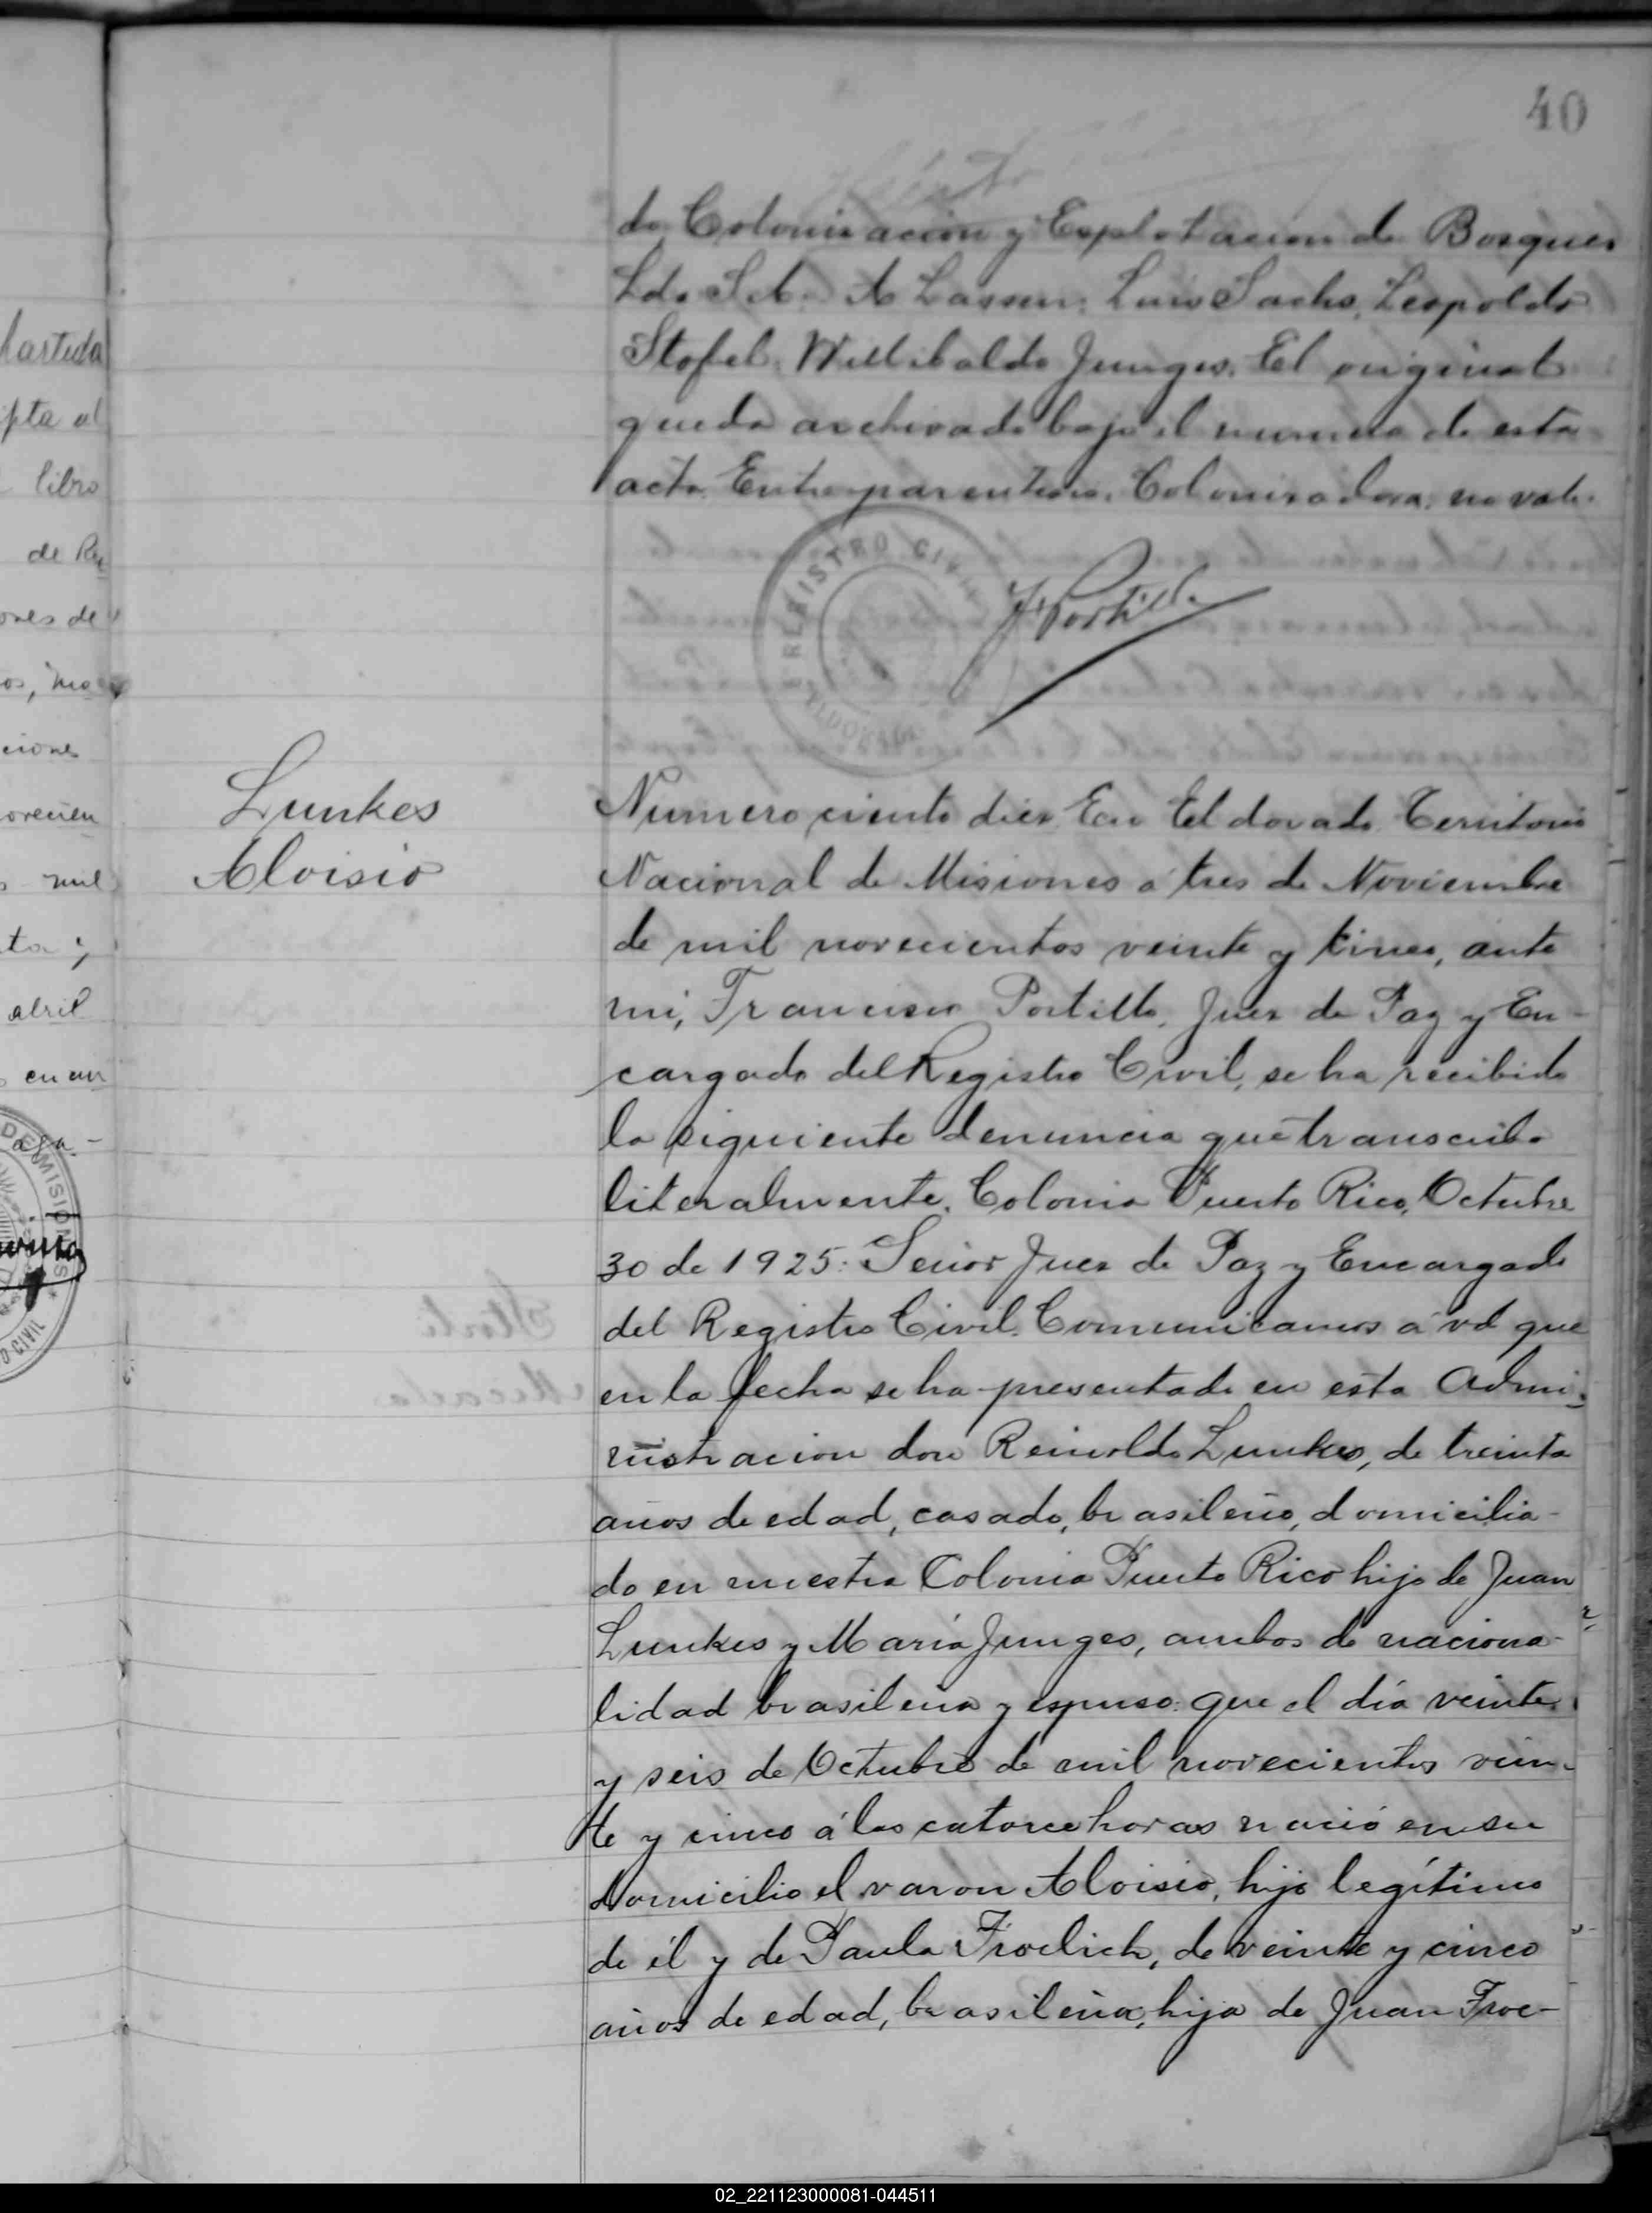 40
da Colonizacion y Esplotacion de Bosques
Lda S.A. A Lassen, Luis Sachs, Leopoldo
Stofel, Willibaldo Junges. El original
queda archivado bajo el numero de esta
acta Entreparentesis. Colonizadora, no vale.
REGISTRO CIVIL
ELDORADO
F Portillo
Lunkes
Aloisio
Numero ciento diez En Eldorado Territorio
Nacional de Misiones á tres de Noviembre
de mil novecientos veinte y cinco, ante
mi, Francisco Portillo, Juez de Paz y En-
cargado del Registro Civil, se ha recibido
la siguiente denuncia que transcribo
literalmente. Colonia Puerto Rico, Octubre
30 de 1925: Señor Juez de Paz y Encargado
del Registro Civil. Comunicamos á vd que
en la fecha se ha presentado en esta Admi-
nistracion don Reinoldo Lunkes, de treinta
años de edad, casado, brasileño, domicilia-
do en nuestra Colonia Puerto Rico hijo de Juan
Lunkes y María Junges, ambos de naciona-
lidad brasileña y espuso: que el día veinte
y seis de Octubre de mil novecientos vein-
te y cinco á las catorce horas nació en su
domicilio el varon Aloisio, hijo legítimo
de él y de Paula Froelich, de veinte y cinco
años de edad, brasileña, hija de Juan Froe-
artida
ipta al
libro
de Re
ones de
os, mo
ciones
ovecien
mil
ta y
abril
en un
DE MISIONES
O CIVIL
02_221123000081-044511